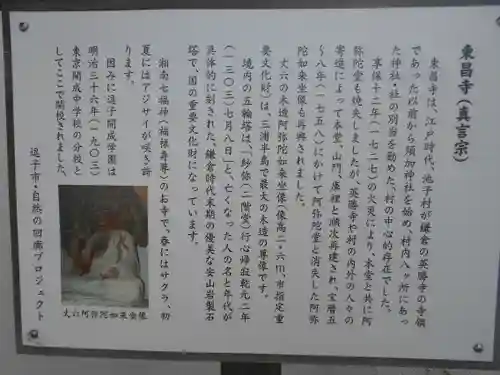 東昌寺（真言宗）
東昌寺は、江戸時代、池子村が鎌倉の英勝寺の寺領
であった以前から須加神社を始め、村内八ヶ所にあっ
た神社・社の別当を勤めた、村の中心的存在でした。
享保十二年（一七二七）の火災により、本堂と共に阿
弥陀堂も焼失しましたが、英勝寺や村の内外の人々の
寄進によって本堂、山門、庫裡と順次再建され、宝暦五
～八年（一七五八）にかけて阿弥陀堂と消失した阿弥
陀如来坐像も再興されました。
丈六の木造阿弥陀如来坐像（像高二・六ｍ、市指定重
要文化財）は、三浦半島で最大の木造の尊像です。
境内の五輪塔は、「沙弥（二階堂）行心帰寂乾元二年
（一三〇三）七月八日」と、亡くなった人の名と年代が
具体的に刻された、鎌倉時代末期の優美な安山岩製石
塔で、国の重要文化財になっています。
湘南七福神（福禄寿尊）のお寺で、春にはサクラ、初
夏にはアジサイが咲き誇
ります。
因みに逗子開成学園は
明治三十六年（一九〇三）
東京開成中学校の分校と
してここで開校されました。
丈六阿弥陀如来坐像
逗子市・自然の回廊プロジェクト